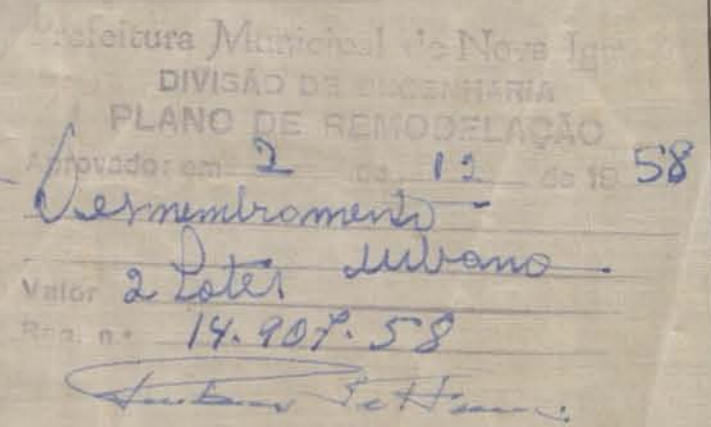 Prefeitura Municipal de Nova
DIVISÃO DE ENGENHARIA
PLANO DE REMODELAÇÃO
Aprovado: em 2 de 12 de 19 58
Desmembramento
2 Lotes urbano.
Valor
Reg. n.º 14.907.58